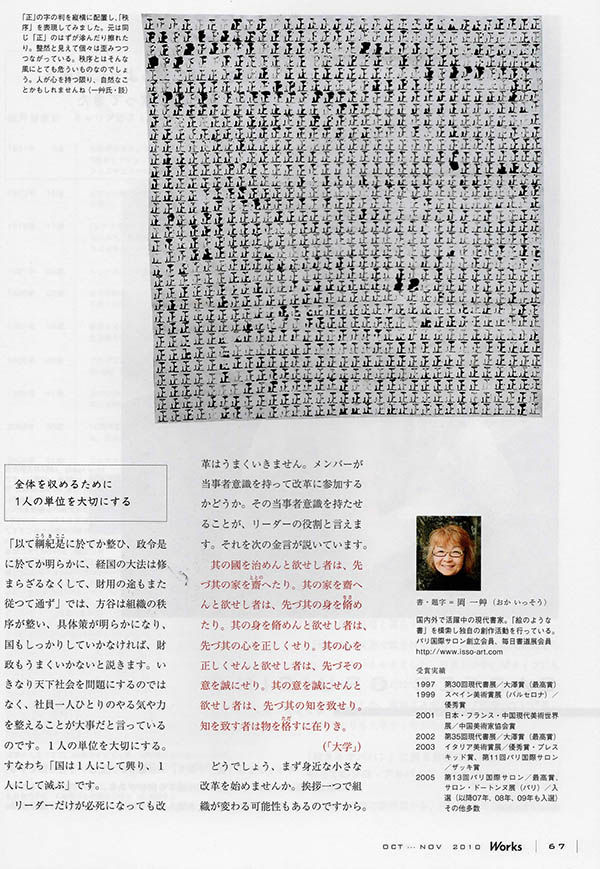 「正」の字の判を縦横に配置し、「秩
序」を表現してみました。元は同
じ「正」のはずが滲んだり擦れた
り。整然と見えて個々は歪みつつ
つながっている。秩序とはそんな
風にとても危ういものなのでしょ
う。人が心を持つ限り、自然なこ
とかもしれませんね（一艸氏・談）
全体を収めるために
1人の単位を大切にする
「以て綱紀是に於てか整ひ、政令是
に於てか明らかに、経国の大法は修
まらざるなくして、財用の途もまた
従つて通ず」では、方谷は組織の秩
序が整い、具体策が明らかになり、
国もしっかりしていかなければ、財
政もうまくいかないと説きます。い
きなり天下社会を問題にするのでは
なく、社員一人ひとりのやる気や力
を整えることが大事だと言っている
のです。1人の単位を大切にする。
すなわち「国は1人にして興り、1
人にして滅ぶ」です。
リーダーだけが必死になっても改
革はうまくいきません。メンバーが
当事者意識を持って改革に参加する
かどうか。その当事者意識を持たせ
ることが、リーダーの役割と言えま
す。それを次の金言が説いています。
其の國を治めんと欲せし者は、先
づ其の家を齋へたり。其の家を齋へ
んと欲せし者は、先づ其の身を脩め
たり。其の身を脩めんと欲せし者は、
先づ其の心を正しくせり。其の心を
正しくせんと欲せし者は、先づその
意を誠にせり。其の意を誠にせんと
欲せし者は、先づ其の知を致せり。
知を致する者は物を格すに在りき。
（「大学」）
どうでしょう、まず身近な小さな
改革を始めませんか。挨拶一つで組
織が変わる可能性もあるのですから。
書・題字＝岡 一艸（おか いっそう）
国内外で活躍中の現代書家。「絵のような
書」を模索し独自の創作活動を行っている。
パリ国際サロン創立会員、毎日書道展会員
http://www.isso-art.com
受賞実績
1997 第30回現代書展／大澤賞（最高賞）
1999 スペイン美術賞展（バルセロナ）／
優秀賞
2001 日本・フランス・中国現代美術世界
展／中国美術家協会賞
2002 第35回現代書展／大澤賞（最高賞）
2003 イタリア美術賞展／優秀賞・プレス
キッド賞、第11回パリ国際サロン
／ザッキ賞
2005 第13回パリ国際サロン／最高賞、
サロン・ドートンヌ展（パリ）／入
選（以降07年、08年、09年も入選）
その他多数
OCT … NOV 2010 Works 67